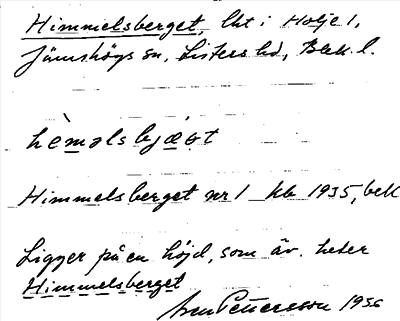 Himmelsberget, lht i Holje 1,
Jämshögs sn, Listers hd, Blek. l.
hèməlsbjæ̀ət
Himmelsberget nr 1 kb 1935, bek
Ligger på en höjd, som äv. heter
Himmelsberget
Pettersson 1956